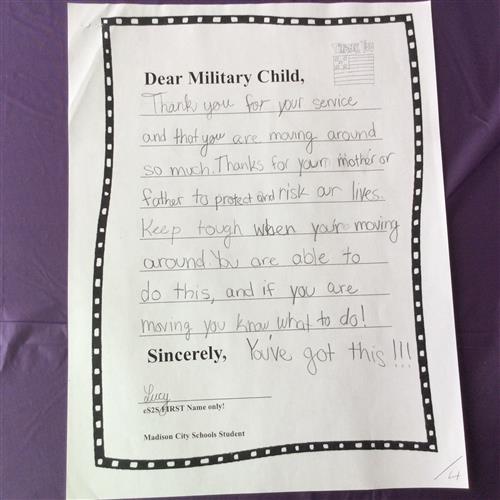 THANK YOU
Dear Military Child,
Thank you for your service
and that you are moving around
so much. Thanks for your mother or
father to protect and risk our lives.
Keep tough when you're moving
around. You are able to
do this, and if you are
moving you know what to do!
Sincerely, You've got this!!!
Lucy
cS2S/FIRST Name only!
Madison City Schools Student
/4